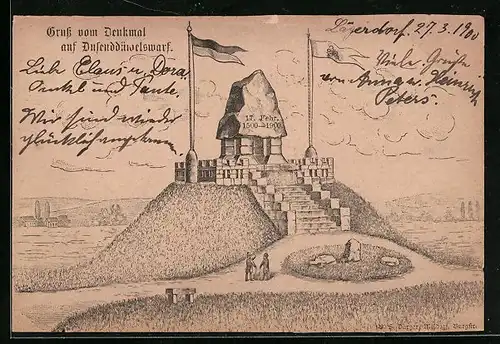 Gruß vom Denkmal
auf Dusenddüwelswarf.
Lägerdorf. 27.3.1900
Liebe Claus u. Dora
Onkel und Tante.
Wir sind wieder
glücklich angekommen
Viele Grüße
von Anna u. Heinrich
Peters.
17. Febr.
1500-1900